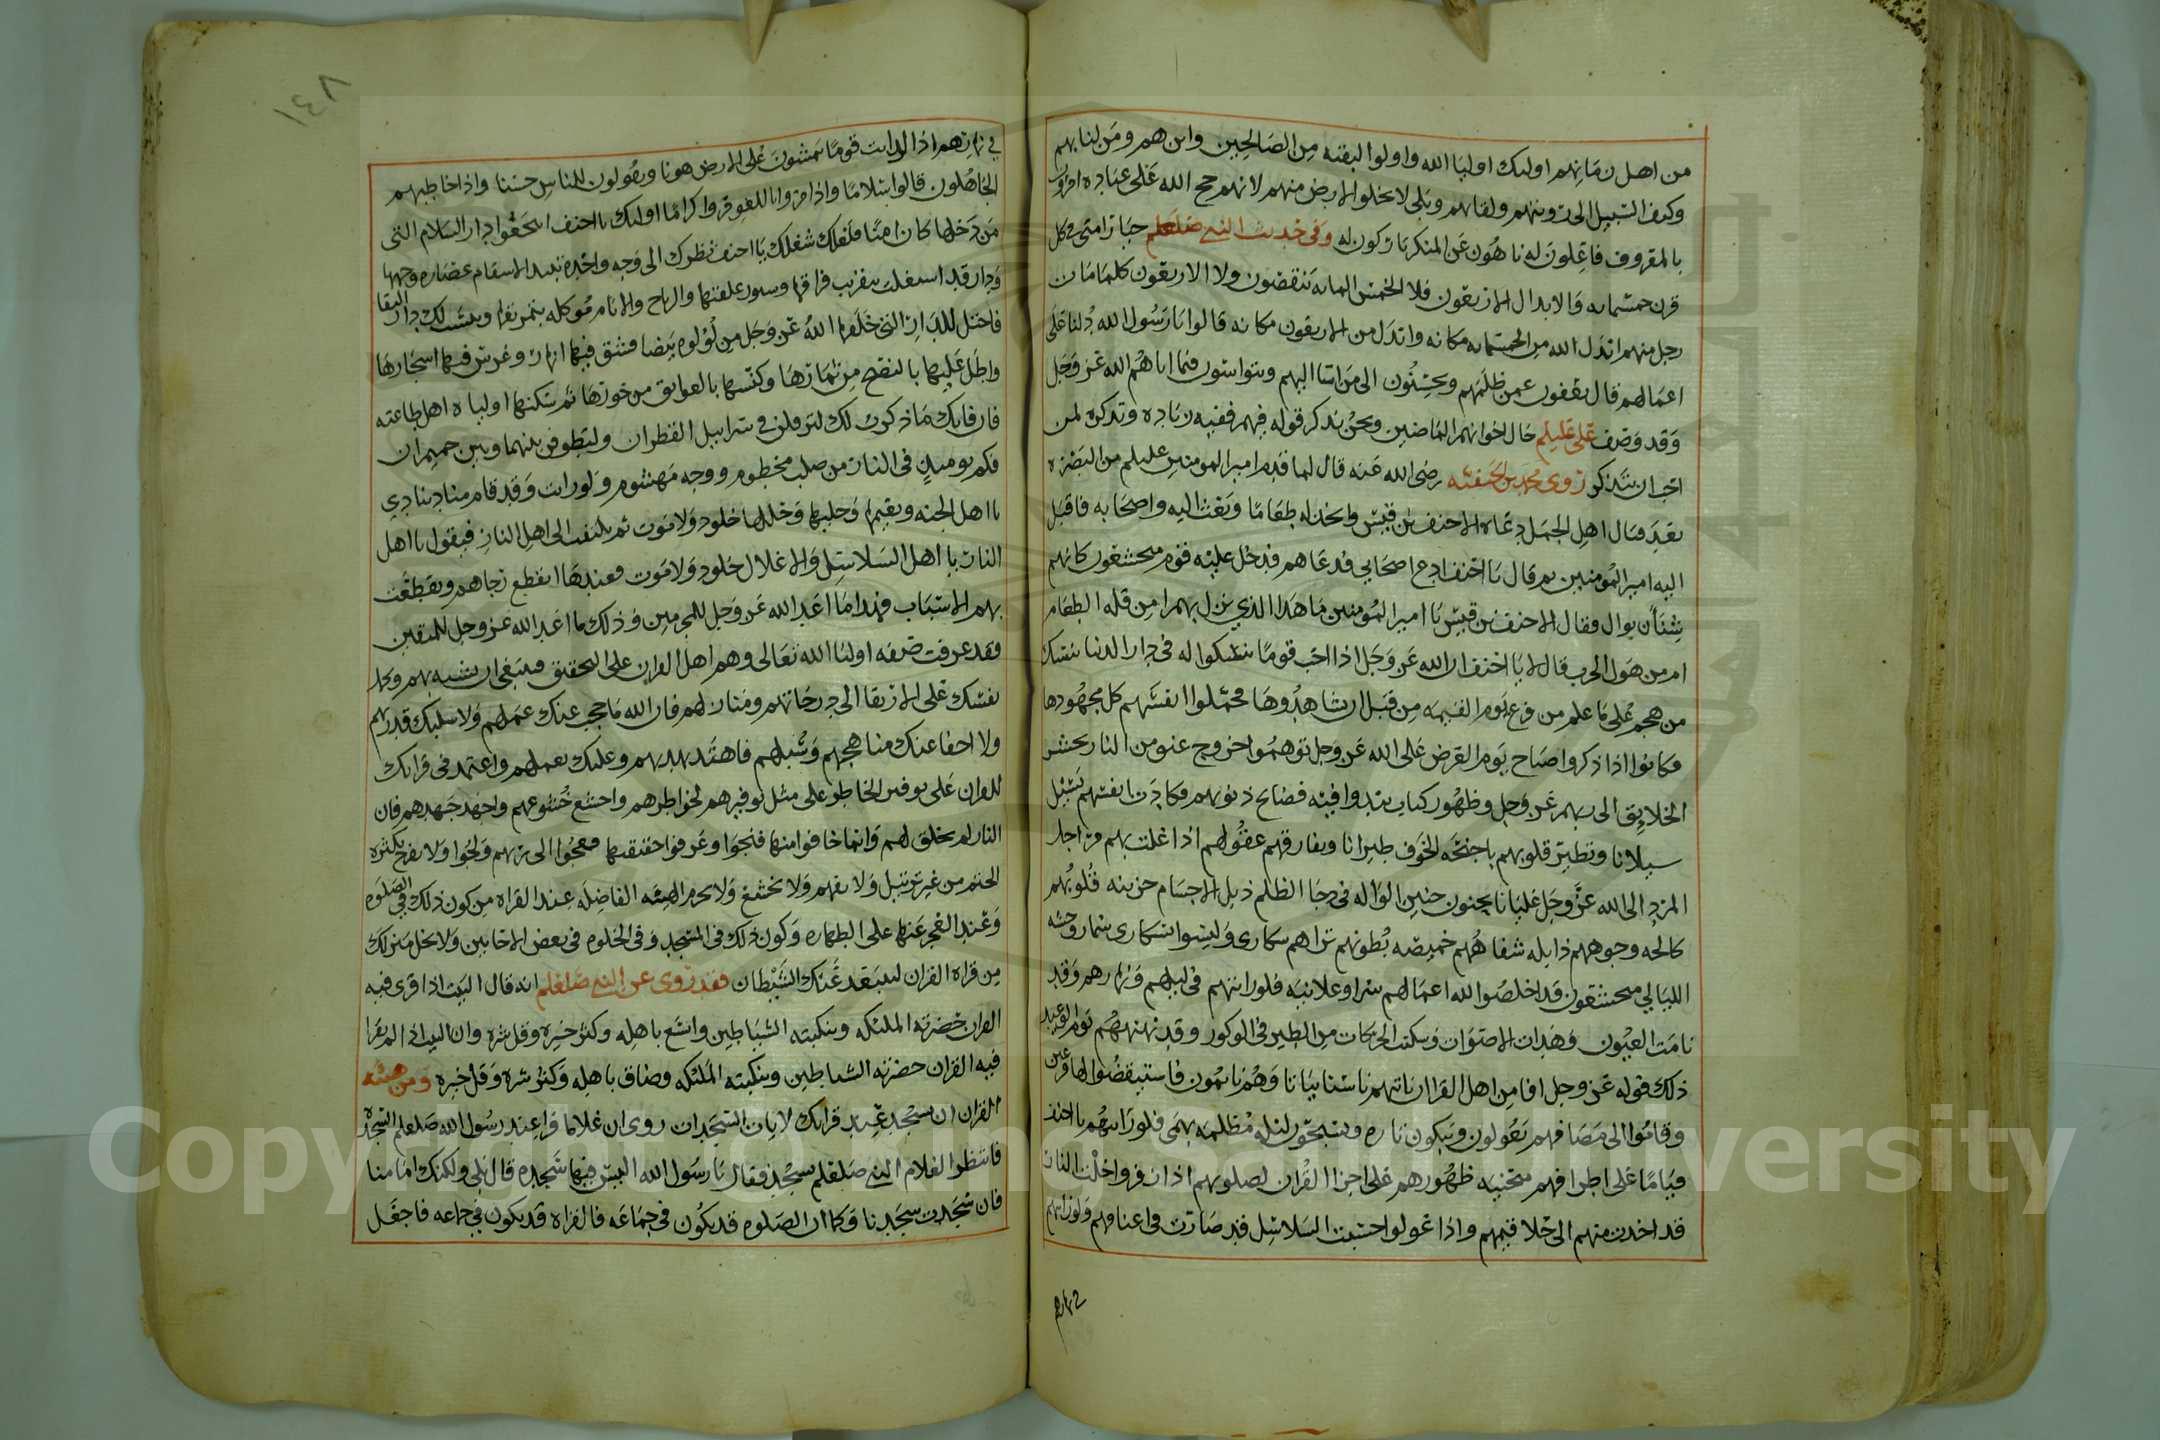 من اهل زمانهم اولىك اوليا الله واولوا البقيه مِن الصَالحِين واين هم ومَن لنا بهم
وكيف السَبيل الى رويتهم ولقايهم وبَلى لا يخلوا الارض منهم لانهم حجج الله عَلى عبَاده امرُوا
بالمعروف فاعِلون له ناهُون عَن المنكر تاركون له وَفي حَديث النبي صَلعَلم خيَار امتي في كل
قرن خمسمايه وَالابدال الاربعُون فلا الخمسُ المايه يَنقصُون ولا الاربعُون كلمامَات
رجل منهم ابدَل الله مِن الخمسمايه مكانه وابدَل من الاربعُون مكانه قالوا يَارَسُول الله دُلنا عَلى
اعمَالهم قال يعفون عمن ظلَمَهم ويحسِنُون الى مَن اسَا اليهم ويتواسَون فيمَا اتاهُم الله عَز وَجَل
وَقد وَصَف عَلي عَليلم حَال اخوانهم المَاضين ونحنُ نذكر قوله فيهم ففيه زيَاده وتذكره لمن
احَب ان يتَذكر رَوى محمد بن الحَنفيّه رضى الله عَنه قال لما قدم امير المومنين عليلم من البَصْره
بَعدَ قتال اهل الجمَل دعَاه الاحنف بن قيسْ واتخذ له طعَامًا وبَعَث اليه واصحَابه فاقبل
اليه امير المُومنين ثم قال يَا احْنف ادع اصحَابي فدعَاهم فدخل عليْه قوم متخشعُون كانهم
شِنَان بوال فقال الاحنف بن قيْس يَا امير المُومنين مَا هَذا الذي نزل بهم امِن قله الطعَام
ام مِن هَول الحرب قال لا يَا احْنف ان الله عَز وَجَل اذا احَب قومًا تنسّكوا له في دار الدنيا تنسّك
من هجم عَلى مَا علم من فزع يَوم القيمَه مِن قبَل ان يشَاهِدُوهَا فحمّلوا انفسَهم كل مجهُودها
فكانوا اذا ذكروا صبَاح يَوم العَرض عَلى الله عَز وجل توهّموا خروج عنق من النار يحشر
الخلايِق الى ربهم عَز وجل وظهُور كتاب يَبدوا فيْه فضايح ذنوبهم فكادَت انفسهم تَسيْل
سيلانا وتطير قلوبهم باجنحَه الخَوف طيرانا ويفارقهم عقُولهم اذا غلت بهم مراجل
المرد الى الله عَزَّ وجَل غليَانا يحنون حنين الوَاله في دجَا الظلم ذبل الاجسَام حَزينه قلُوبُهم
كالحه وجوههم ذابله شفاهُهم خميصَه بُطونهم تراهم سكارى وَليسُوا بسكارى سُمار وحشه
الليَالي متخشعُون قد اخلصُوا لله اعمَالهم سرا وعلانيَه فلو رايتهم في ليلهم وَنهارهم وَقد
نامَت العيُون وَهَدات الاصوَات وَسكنت الحرَكات مِن الطيْر في الوكور وقد نهنههُم يَوم الوَعيد
ذلك قوله عَز وجل افامِن اهل القرا ان ياتيهم باسُنا بيَاتا وَهُم نايمُون فاستيقضُوا لها فزعين
وقامُوا الى مَصَافهم يَعُولون وَيبكون تاره ويسَبّحُون لَيله مُظلمه بَهْمى فلو رَايتهُم يا احنف
قيَامًا عَلى اطرافهم منحنيَه ظهُورهم عَلى اجزا القُران لصلوتهم اذا زفروا خلْت النار
قد اخذت منهم الى حَلاقيمهم واذا عولوا حسَبت السَلاسل قد صَارت في اعناقهم وَلو رَايتهم
نهارهم
١٤٨
في نهارهم اذا لرايت قومًا يَمشُونَ عَلى الارض هونا ويقُولون للناسِ حسْنا واذا خاطبهم
الجَاهلُون قالوا سَلامًا واذا مروا باللغو مروا كرامًا اولىك يا احنف انتجَعُوا دار السَلام التي
مَن دَخلها كان امنًا فلعَلك شغلك يَا احنف نظرك الى وَجه واحده تبيد الاسقام غضاره وجهها
وَدار قد اسغلت بتقريب فراقها وستور علقتها والرياح والايام موكله بتمزيقها وبئست لك دار البقا
فاحتل للدَار التي خلقها اللهُ عَز وَجَل مِن لُؤلوه بَيضا فشق فيها انهار وغرَس فيها اشجَارهَا
واظل عَليها بالنضج مِن ثمارهَا وكنسهَا بالعواتق من حورهَا ثم سكنها اوليَاه اهل طاعته
فان فاتك مَا ذكرت لك لترفلن في سَرابيل القطران ولتطوفن بينها وبين حميم ان
فكم يوميذٍ في النار من صلب محطوم ووجه مَهشوم وَلو رايت وَقد قام مناد ينادي
يا اهل الجنه ونعيمها وَحليها وَحللها خلود وَلا مَوت ثم يلتفت الى اهل النار فيقول يا اهل
النار يا اهل السَلاسِل وَالاغلال خلود وَلا مَوت فعندهَا انقطع رجاهم وتقطّعَت
بهم الاسْبَاب فهذا مَا اعَد الله عَز وَجل للمجرمِين وَذلك ما اعَد الله عز وجل للمتقين
فقد عرفت صفه اوليَا الله تعَالى وهم اهل القران على التحقيق فينبغي ان يتشبه بهم وتحمل
نفسَك عَلى الارتقا الى درجَاتهم ومَنازلهم فان الله مَا حجَب عنك عمَلهم ولا سلبك قدرتهم
ولا اخفا عنك مناهجهم وَسُبلهم فاهتد بهديهم وعليك بعملهم واعتمد في قراتك
للقران عَلى توفير الخاطر على مثل توفيرهم لخواطرهم واخشع خُشُوعهم واجهد جَهدهم فان
النار لم يخلق لهم وَانما خافوا منها فنجَوا وعَرفوا حقيقتها فعجُّوا الى ربهم وَلجُوا ولا يفرح بكثره
الختم من غير ترتيل وَلا تفهم وَلا تخشع وَلا تحرم الهيئه الفاضِله عند القراه مِن كون ذلك في الصَلوه
وَعند الفجر عَنها على الطهاره وَكون ذلك في المسْجد وَفي الخلوه في بعض الاحَايين وَلا تخل مَنزلك
مِن قراه القران ليبتعد عَنك الشَيْطان فقد رَوى عن النبي صَلعَلم انه قال البَيت اذا قرئ فيه
القران حضرته الملئكه وتنكبته الشيَاطين واتسَع باهله وكثر خَيره وقل شره وان البيت اذا لم يقرا
فيه القران حضرته الشيَاطين وتنكبته الملئكه وضاق باهله وَكثر شره وَقل خيره وَمن هيئه
القران ان تسْجد عِند قراتك لايات السَجَدات روى ان غلامًا قرا عند رسُول الله صَلعَلم السَجده
فانتظر الغلام النبي صَلعَلم يسجُد فقال يَا رسُول الله اليسَ فيها سَجده قال بَلى ولكنك امامنا
فان سَجَدت سَجَدنا وَكما ان الصَلوه قد يكُون في جمَاعَه فالقراه قد يكون في جماعه فاجعَل
Copyright © King Saud University